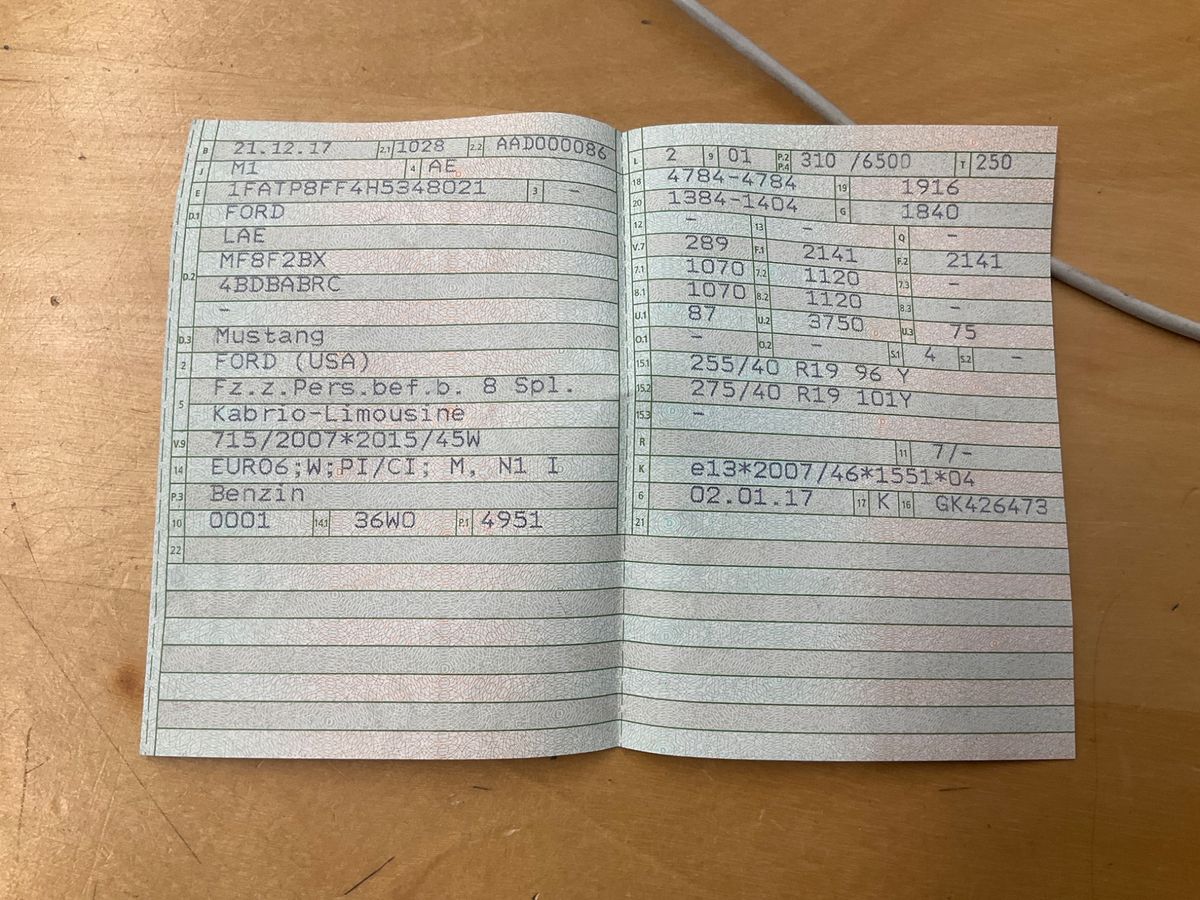 B 21.12.17 2.1 1028 2.2 AAD000086
J M1 4 AE
E 1FATP8FF4H5348021 3 -
D.1 FORD
LAE
D.2 MF8F2BX
4BDBABRC
-
D.3 Mustang
2 FORD (USA)
5 Fz.z.Pers.bef.b. 8 Spl.
Kabrio-Limousine
V.9 715/2007*2015/45W
14 EURO6;W;PI/CI; M, N1 I
P.3 Benzin
10 0001 14.1 36W0 P.1 4951
22
L 2 9 01 P.2 P.4 310 /6500 T 250
18 4784-4784 19 1916
20 1384-1404 G 1840
12 - 13 - Q -
V.7 289 F.1 2141 F.2 2141
7.1 1070 7.2 1120 7.3 -
8.1 1070 8.2 1120 8.3 -
U.1 87 U.2 3750 U.3 75
O.1 - O.2 - S.1 4 S.2 -
15.1 255/40 R19 96 Y
15.2 275/40 R19 101Y
15.3 -
R 11 7/-
K e13*2007/46*1551*04
6 02.01.17 17 K 16 GK426473
21